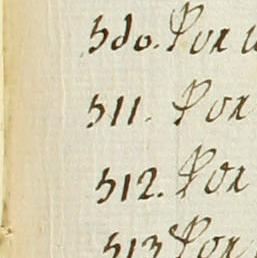 510. Por
511. Por
512. Por
513 Por